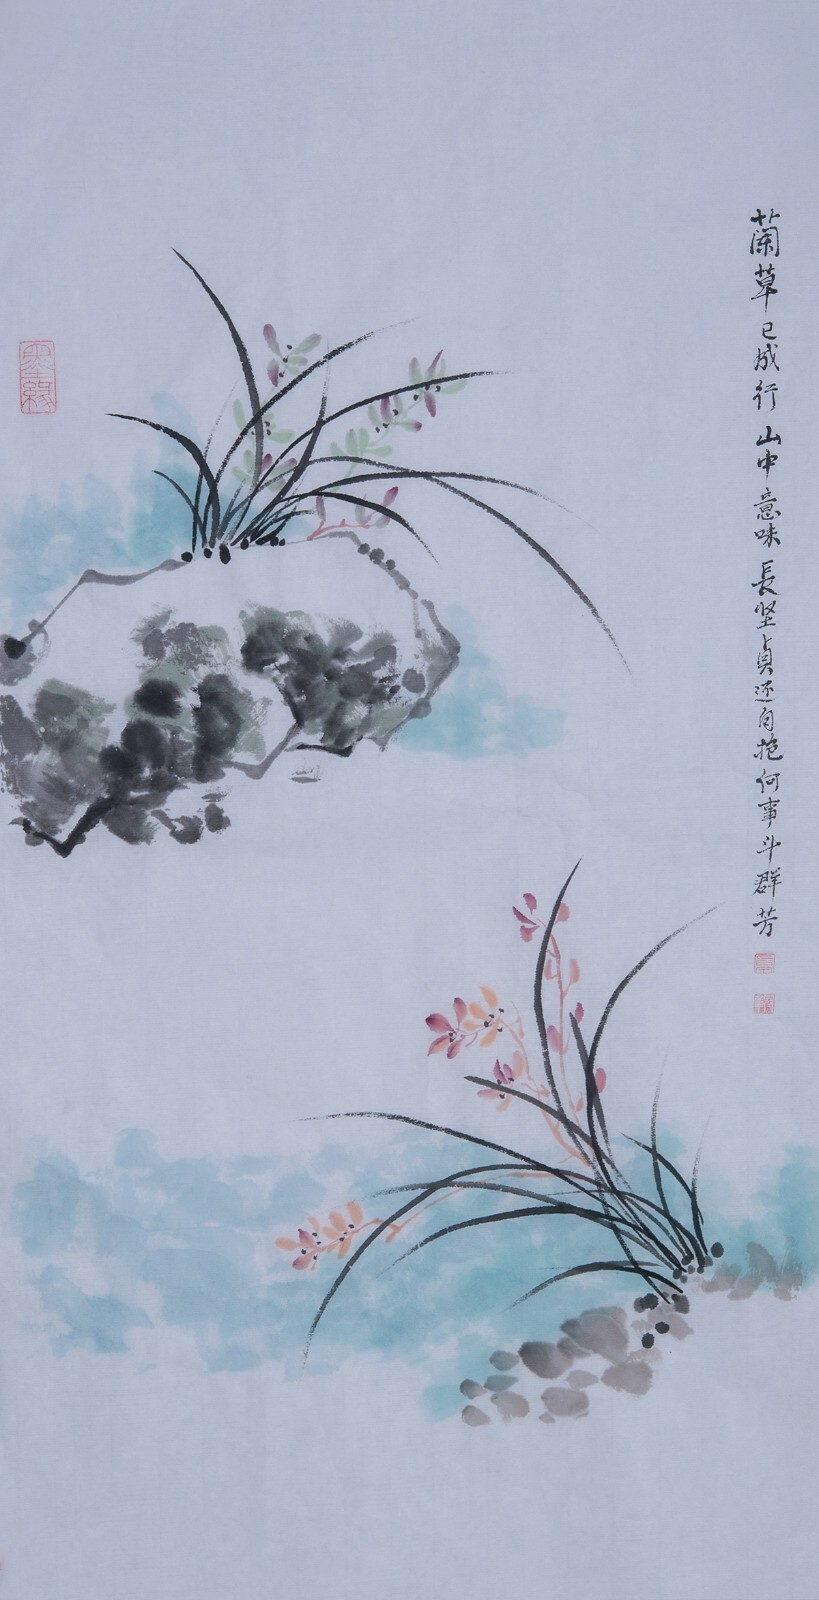 蘭草已成行山中意味長坚貞还自抱何事斗群芳
墨緣